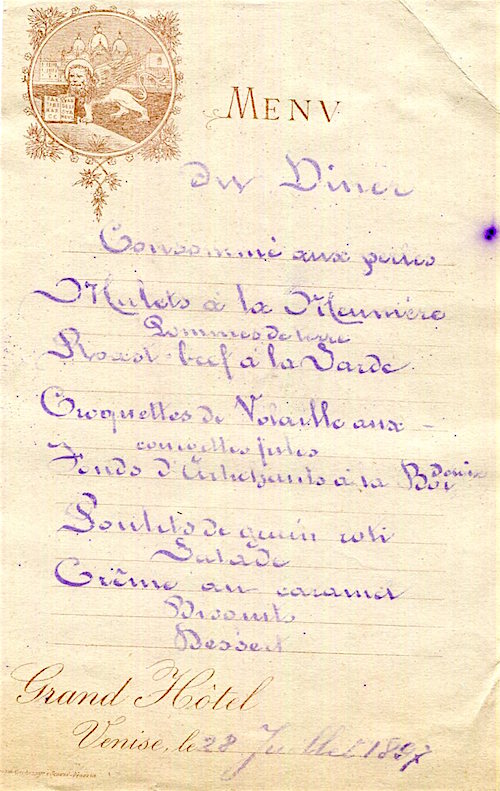 MENV
du Diner
Consommé aux perles
Mulets à la Meunière
Pommes de terre
Roast-beef à la Sarde
Croquettes de Volaille aux
courgettes frites
Fonds d'Artichauts à la
Poulets de grain roti
Salade
Crême au caramel
Biscuits
Dessert
Grand Hôtel
Venise, le 28 Juillet 1897